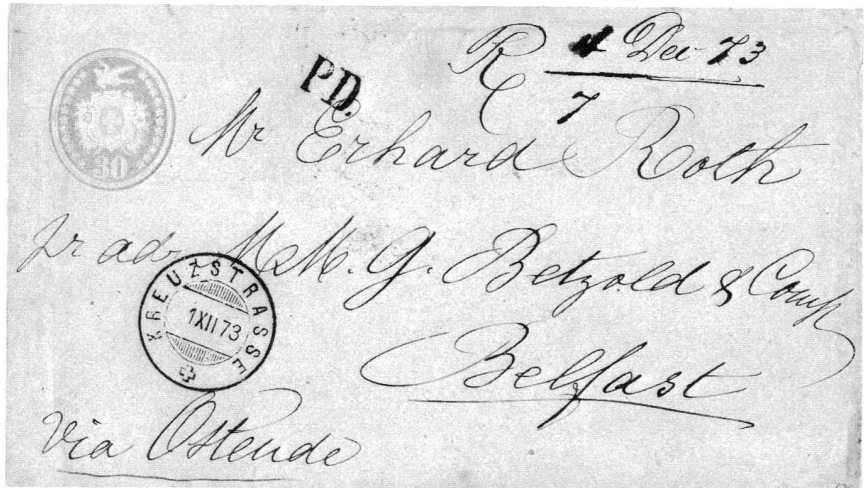 R 4 Dec 73
7
P.D.
30
Mr Erhard Roth
pr adr. MM. G. Betzold & Comp
KREUZSTRASSE
1 XII 73
Belfast
via Ostende